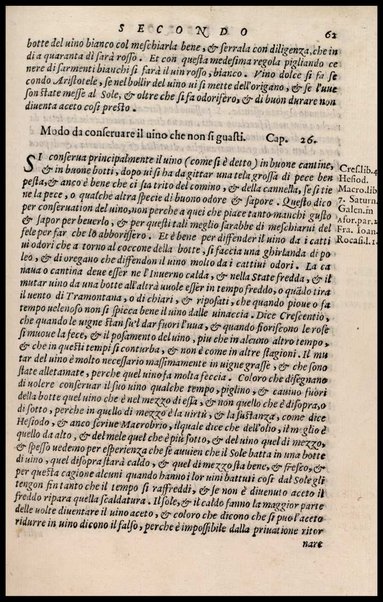 SECONDO 62
botte del uino bianco col meschiarla bene, & serrala con diligenza, che in
di a quaranta dì sarà rosso. Et con questa medesima regola pigliando ce
nere di sarmenti bianchi si farà il uin rosso, bianco. Vino dolce si fa se
condo Aristotele, se nel bollir del uino ui si mette dell'origano, & se l'uue
son state messe al Sole, & oltre che si fa odorifero, & di buon durare non
diuenta aceto così presto.
Modo da conseruare il uino che non si guasti. Cap. 26.
SI conserua principalmente il uino (come si è detto) in buone cantine,
& in buone botti, dopo ui s'ha da gittar una tela grossa di pece ben
pesta, & anco è bene che ci sia trito del cimino, & della cannella, se si tie
ne la pece, o qualche altra specie di buono odore & sapore. Questo dico
per conseruatione del uino, non perche a quei che piace tanto manchi gusto
& sapor per beuerlo, & per questi tali meglio sarebbe di meschiarui del
fele per far che lo abborrissero. Et è bene per diffender il uino da i catti
ui odori che a torno al coccone della botte, si faccia una ghirlanda di po
leo, & di oregano che diffendon il uino molto da i cattiui odori. La ca
naua o cantina deue esser ne l'Inuerno calda, & nella State fredda, & il
mutar uino da una botte all'altrà uuole esser in tempo freddo, o quãdo tira
il uento di Tramontana, o di chiari, & riposati, che quando pioue o fa
tempo uelenoso non si spicca bene il uino dalle uinaccia. Dice Crescentio,
che quando le uigne stan su'l dar fuori l'uua, & quando fioriscono le rose
si muoue la fece, & il posamento del uino, piu che in alcuno altro tempo,
& che in questi tempi si conturba, & non è come in altre stagioni. Il mu
tar del uino è molto necessario massimamente in uigne grasse, & che sono
state alletamate, perche quel uino fa molta feccia. Coloro che disegnano
di uolere conseruar il suo uino qualche tempo, piglino, & cauino fuori
della botte quel uino che è nel mezo di essa, & non quello che è disopra, o
di sotto, perche in quello di mezzo è la uirtù, & la sustanza, come dice
Hesiodo, & anco scriue Macrobrio, il quale dice che dell'olio, il meglio è
quello da alto, & del mele quel che è più sotto, & del uino quel di mezzo,
& spesso uedemo per esperienza che se auuien che il Sole batta in una botte
di uino, quel disopra starà caldo, & quel di mezzo sta bene, & fresco, &
per questa cagione alcuni quando hanno i lor uini battuti così dal Sole gli
tengon fin tanto che il tempo si raffreddi, & se non è diuenuto aceto il
freddo ripara quella scaldatura. Il sole, & il caldo fanno la maggior parte
delle uolte diuentare il uino aceto, & coloro che dicono che si puo l'aceto
ridurre in uino dicono il falso, perche è impossibile dalla priuatione ritor
nare
Cresc. lib. 4
Hesiod.
Macro. lib
7. Satur.
Galen. in
Afor. par. 2
Fra. Ioan
Rocasi. l. 1